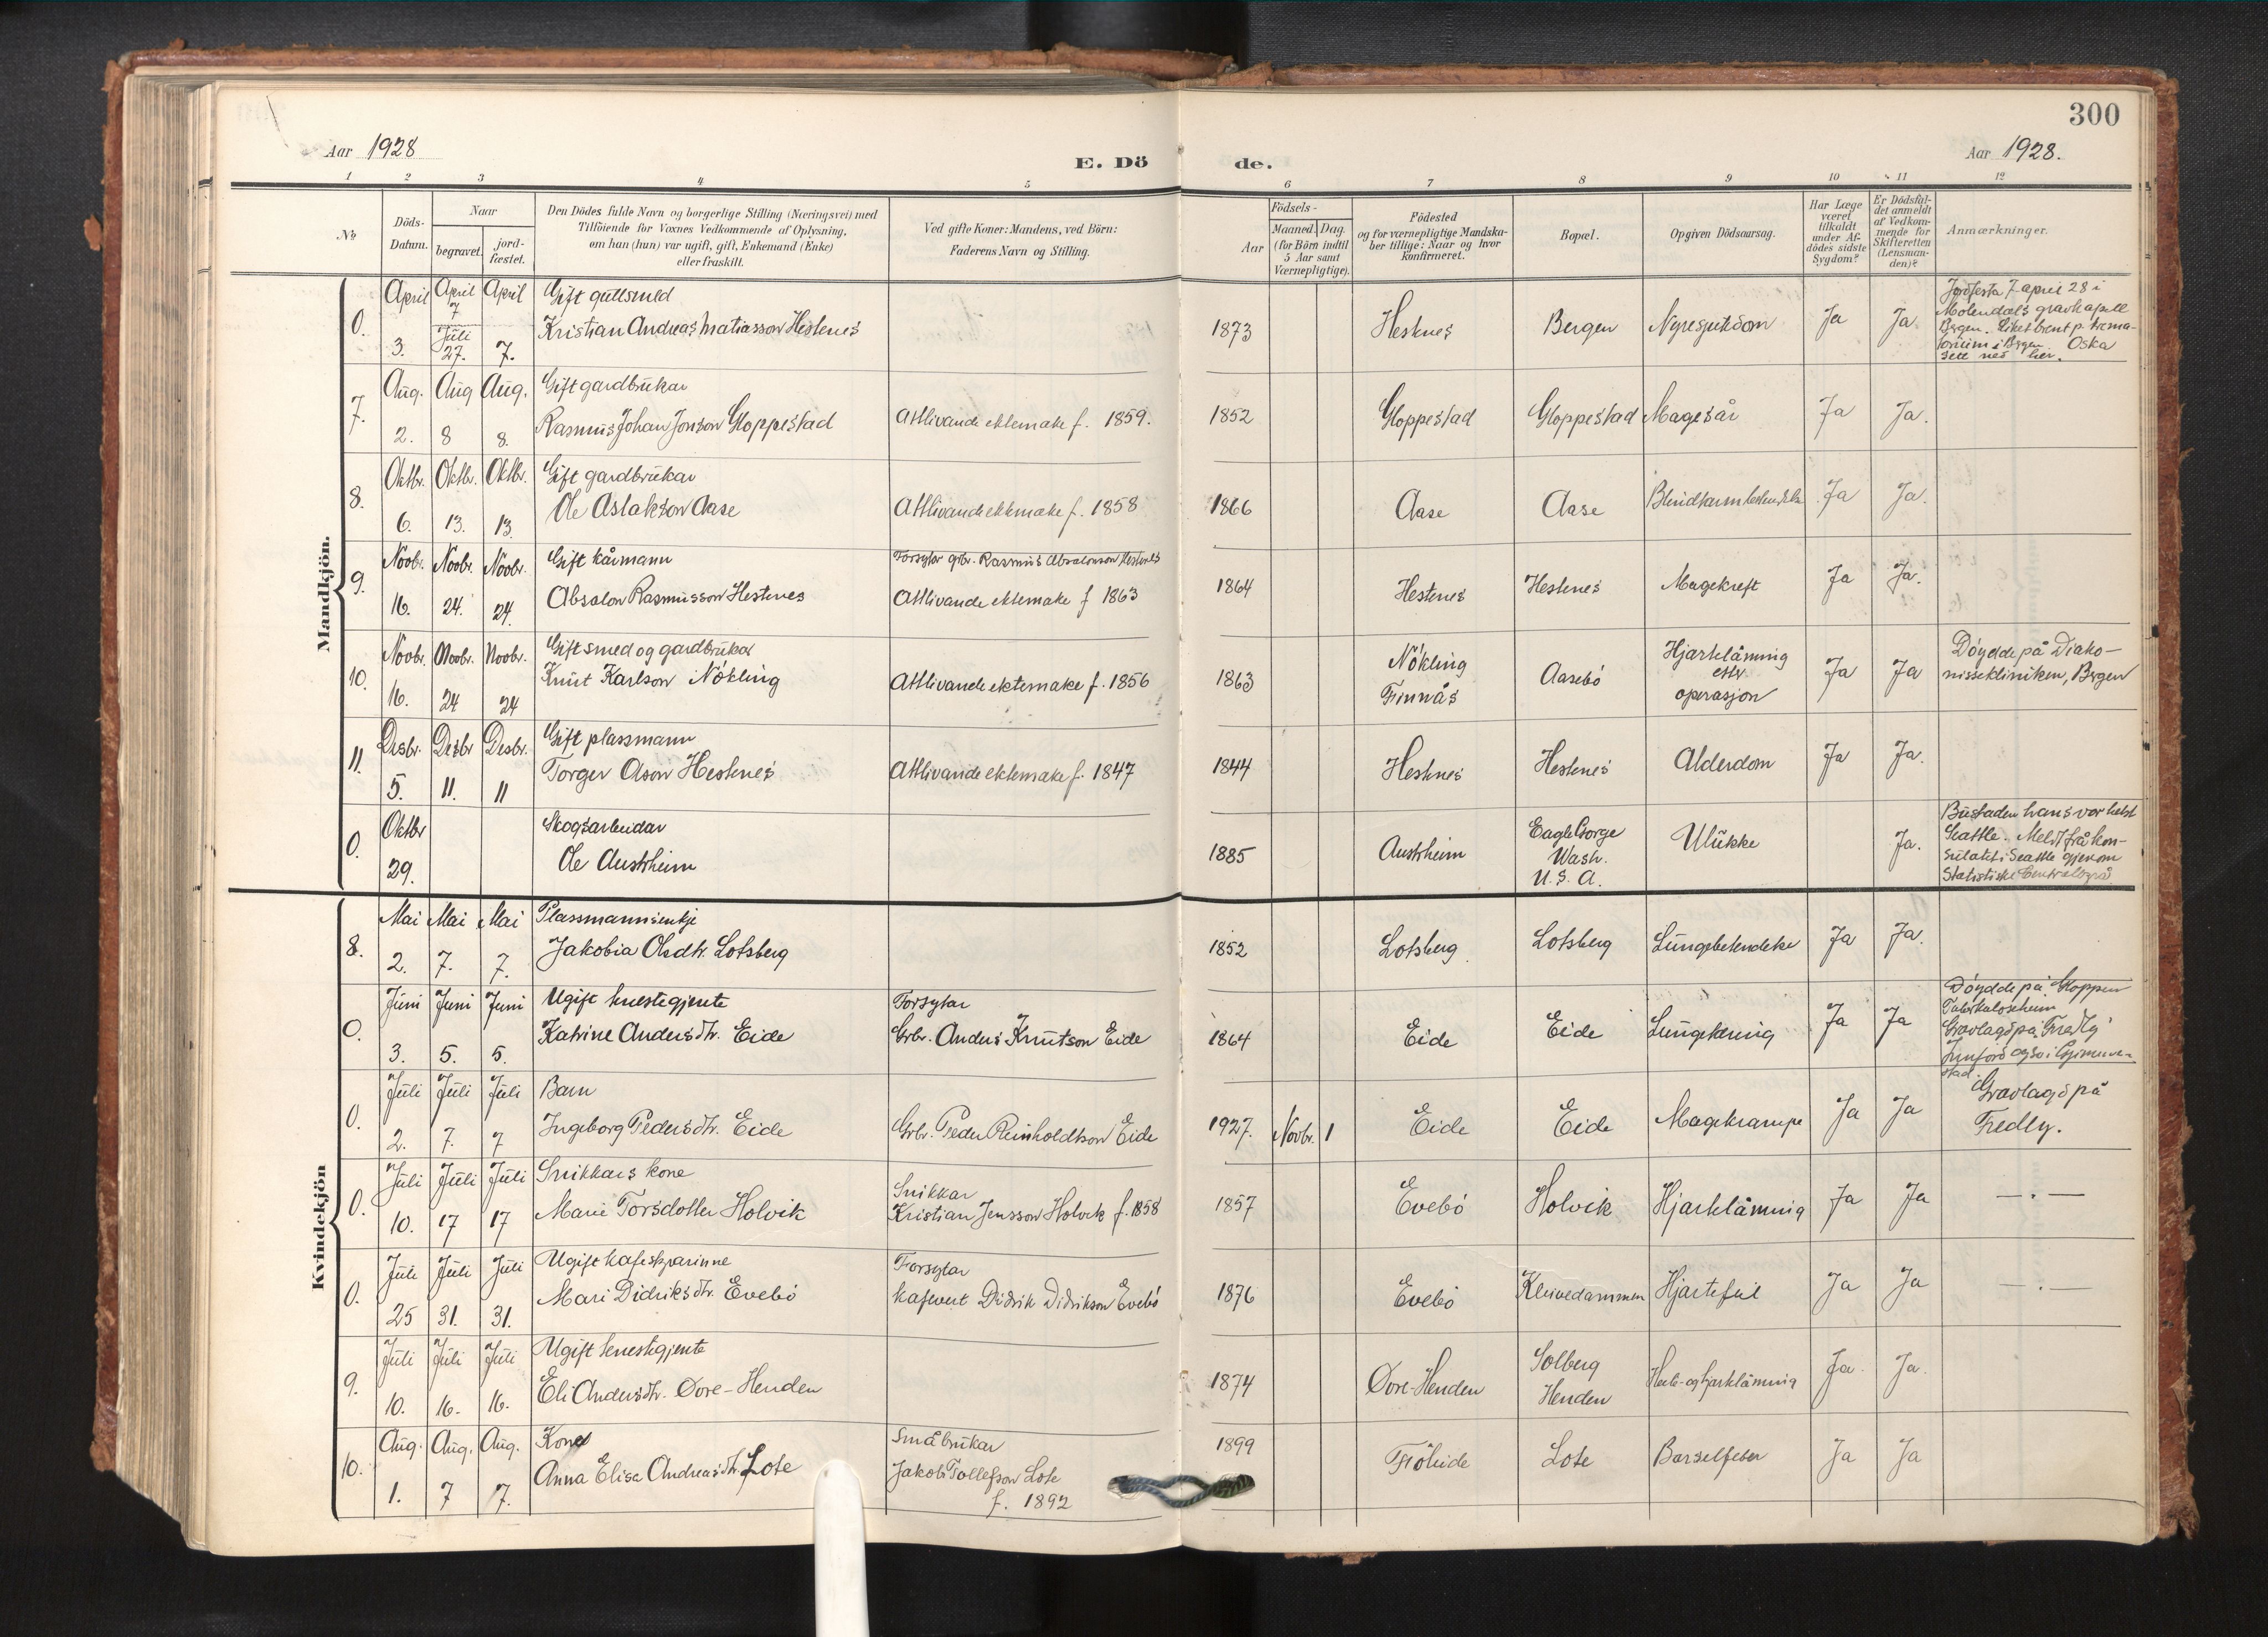 300
Aar 1928
E. Döde.
Aar 1928.
1 2 3 4 5 6 7 8 9 10 11 12
№
Döds-Datum.
Naar
begravet.
jord-fæstet.
Den Dödes fulde Navn og borgerlige Stilling (Næringsvei) med
Tilföiende for Voxnes Vedkommende af Oplysning,
om han (hun) var ugift, gift, Enkemand (Enke)
eller fraskilt.
Ved gifte Koner: Mandens, ved Börn:
Faderens Navn og Stilling.
Födsels-
Aar
Maaned. Dag.
(for Börn indtil
5 Aar samt
Værnepligtige).
Födested
og for værnepligtige Mandska-
ber tillige: Naar og hvor
konfirmeret.
Bopæl.
Opgiven Dödsaarsag.
Har Læge
været
tilkaldt
under Af-
dödes sidste
Sygdom?
Er Dödsfal-
det anmeldt
af Vedkom-
mende for
Skifteretten
(Lensman-
den)?
Anmærkninger.
Mandkjön.
0. April 3. April 7 Juli 27. April 7. Gift gullsmed
Kristian Andreas Matiasson Hestenes
1873 Hestnes Bergen Nyresjukdom Ja Ja
Jordfesta 7 april 28 i
Mölendals gravkapell
Bergen. Liket brent p. krema-
torium i Bergen. Oska
sett ned her.
7. Aug. 2. Aug 8 Aug. 8. Gift gardbrukar
Rasmus Johan Jonson Gloppestad
Attlivande ektemake f. 1859.
1852 Gloppestad Gloppestad Magesår Ja Ja.
8. Oktbr. 6. Oktbr. 13. Oktbr. 13. Gift gardbrukar
Ole Aslakson Aase
Attlivande ektemake f. 1858
1866 Aase Aase Blindtarmbetendelse Ja Ja.
9. Novbr. 16. Novbr. 24. Novbr. 24. Gift kårmann
Absalon Rasmusson Hestenes
Forsytar grbr. Rasmus Absalonson Hestenes
Attlivande ektemake f 1863
1864 Hestenes Hestenes Magekreft Ja Ja.
10. Novbr. 16. Novbr. 24 Novbr. 24 Gift smed og gardbrukar
Knut Karlson Nökling
Attlivande ektemake f. 1856
1863 Nökling
Finnås
Aasebö
Hjartelåming
etter
operasjon
Ja Ja
Döydde på Diako-
nissekliniken, Bergen
11. Desbr. 5. Desbr 11. Desbr. 11 Gift plassmann
Torger Olson Hestenes
Attlivande ektemake f. 1847
1844 Hestnes Hestnes Alderdom Ja Ja.
0. Oktbr 29. Skogsarbeidar
Ole Austrheim
1885 Austrheim
Eagle Gorge
Wash.
U.S.A.
Ulukke Ja.
Bustaden hans var helst
Seattle. Meldt frå kon-
sulatet i Seattle gjenom
Statistiske Centralbyrå
Kvindekjön
8. Mai 2. Mai 7. Mai 7. Plassmannsenkje
Jakobia Olsdtr. Lotsberg
1852 Lotsberg Lotsberg Lungebetendelse Ja Ja.
0. Juni 3. Juni 5. Juni 5. Ugift tenestegjente
Katrine Andersdtr. Eide
Forsytar
Grbr. Anders Knutson Eide
1864 Eide Eide Lungetæring Ja Ja
Döydde på Gloppen
Tuberkuloseheim
Gravlagd på Fredly
Innförd også i Gimmestad
0. Juli 2. Juli 7. Juli 7 Barn
Ingeborg Pedersdtr. Eide
Grbr. Peder Reinholdtson Eide
1927. Novbr. 1 Eide Eide Magekrampe Ja Ja
Gravlagd på
Fredly.
0. Juli 10. Juli 17 Juli 17 Snikkars kone
Marie Torsdotter Holvik
Snikkar
Kristian Jensson Holvik f. 1858
1857 Evebö Holvik Hjartelåming Ja Ja —.—
0. Juli 25 Juli 31. Juli 31. Ugift kafeskjarinne
Mari Didriksdtr. Evebö
Forsytar
kafevert Didrik Didrikson Evebö
1876 Evebö Kleivedammen Hjartefeil Ja Ja —.—
9. Juli 10. Juli 16. Juli 16. Ugift tenestegjente
Eli Andersdtr. Övre-Henden
1874 Övre-Henden
Solberg
Henden
Heile- og hjartelåming Ja. Ja.
10. Aug. 1. Aug. 7 Aug. 7. Kone
Anna Elisa Andreasdtr. Lote
Småbrukar
Jakob Tollefson Lote
f. 1892
1899 Fröheide Lote Barselfeber Ja Ja